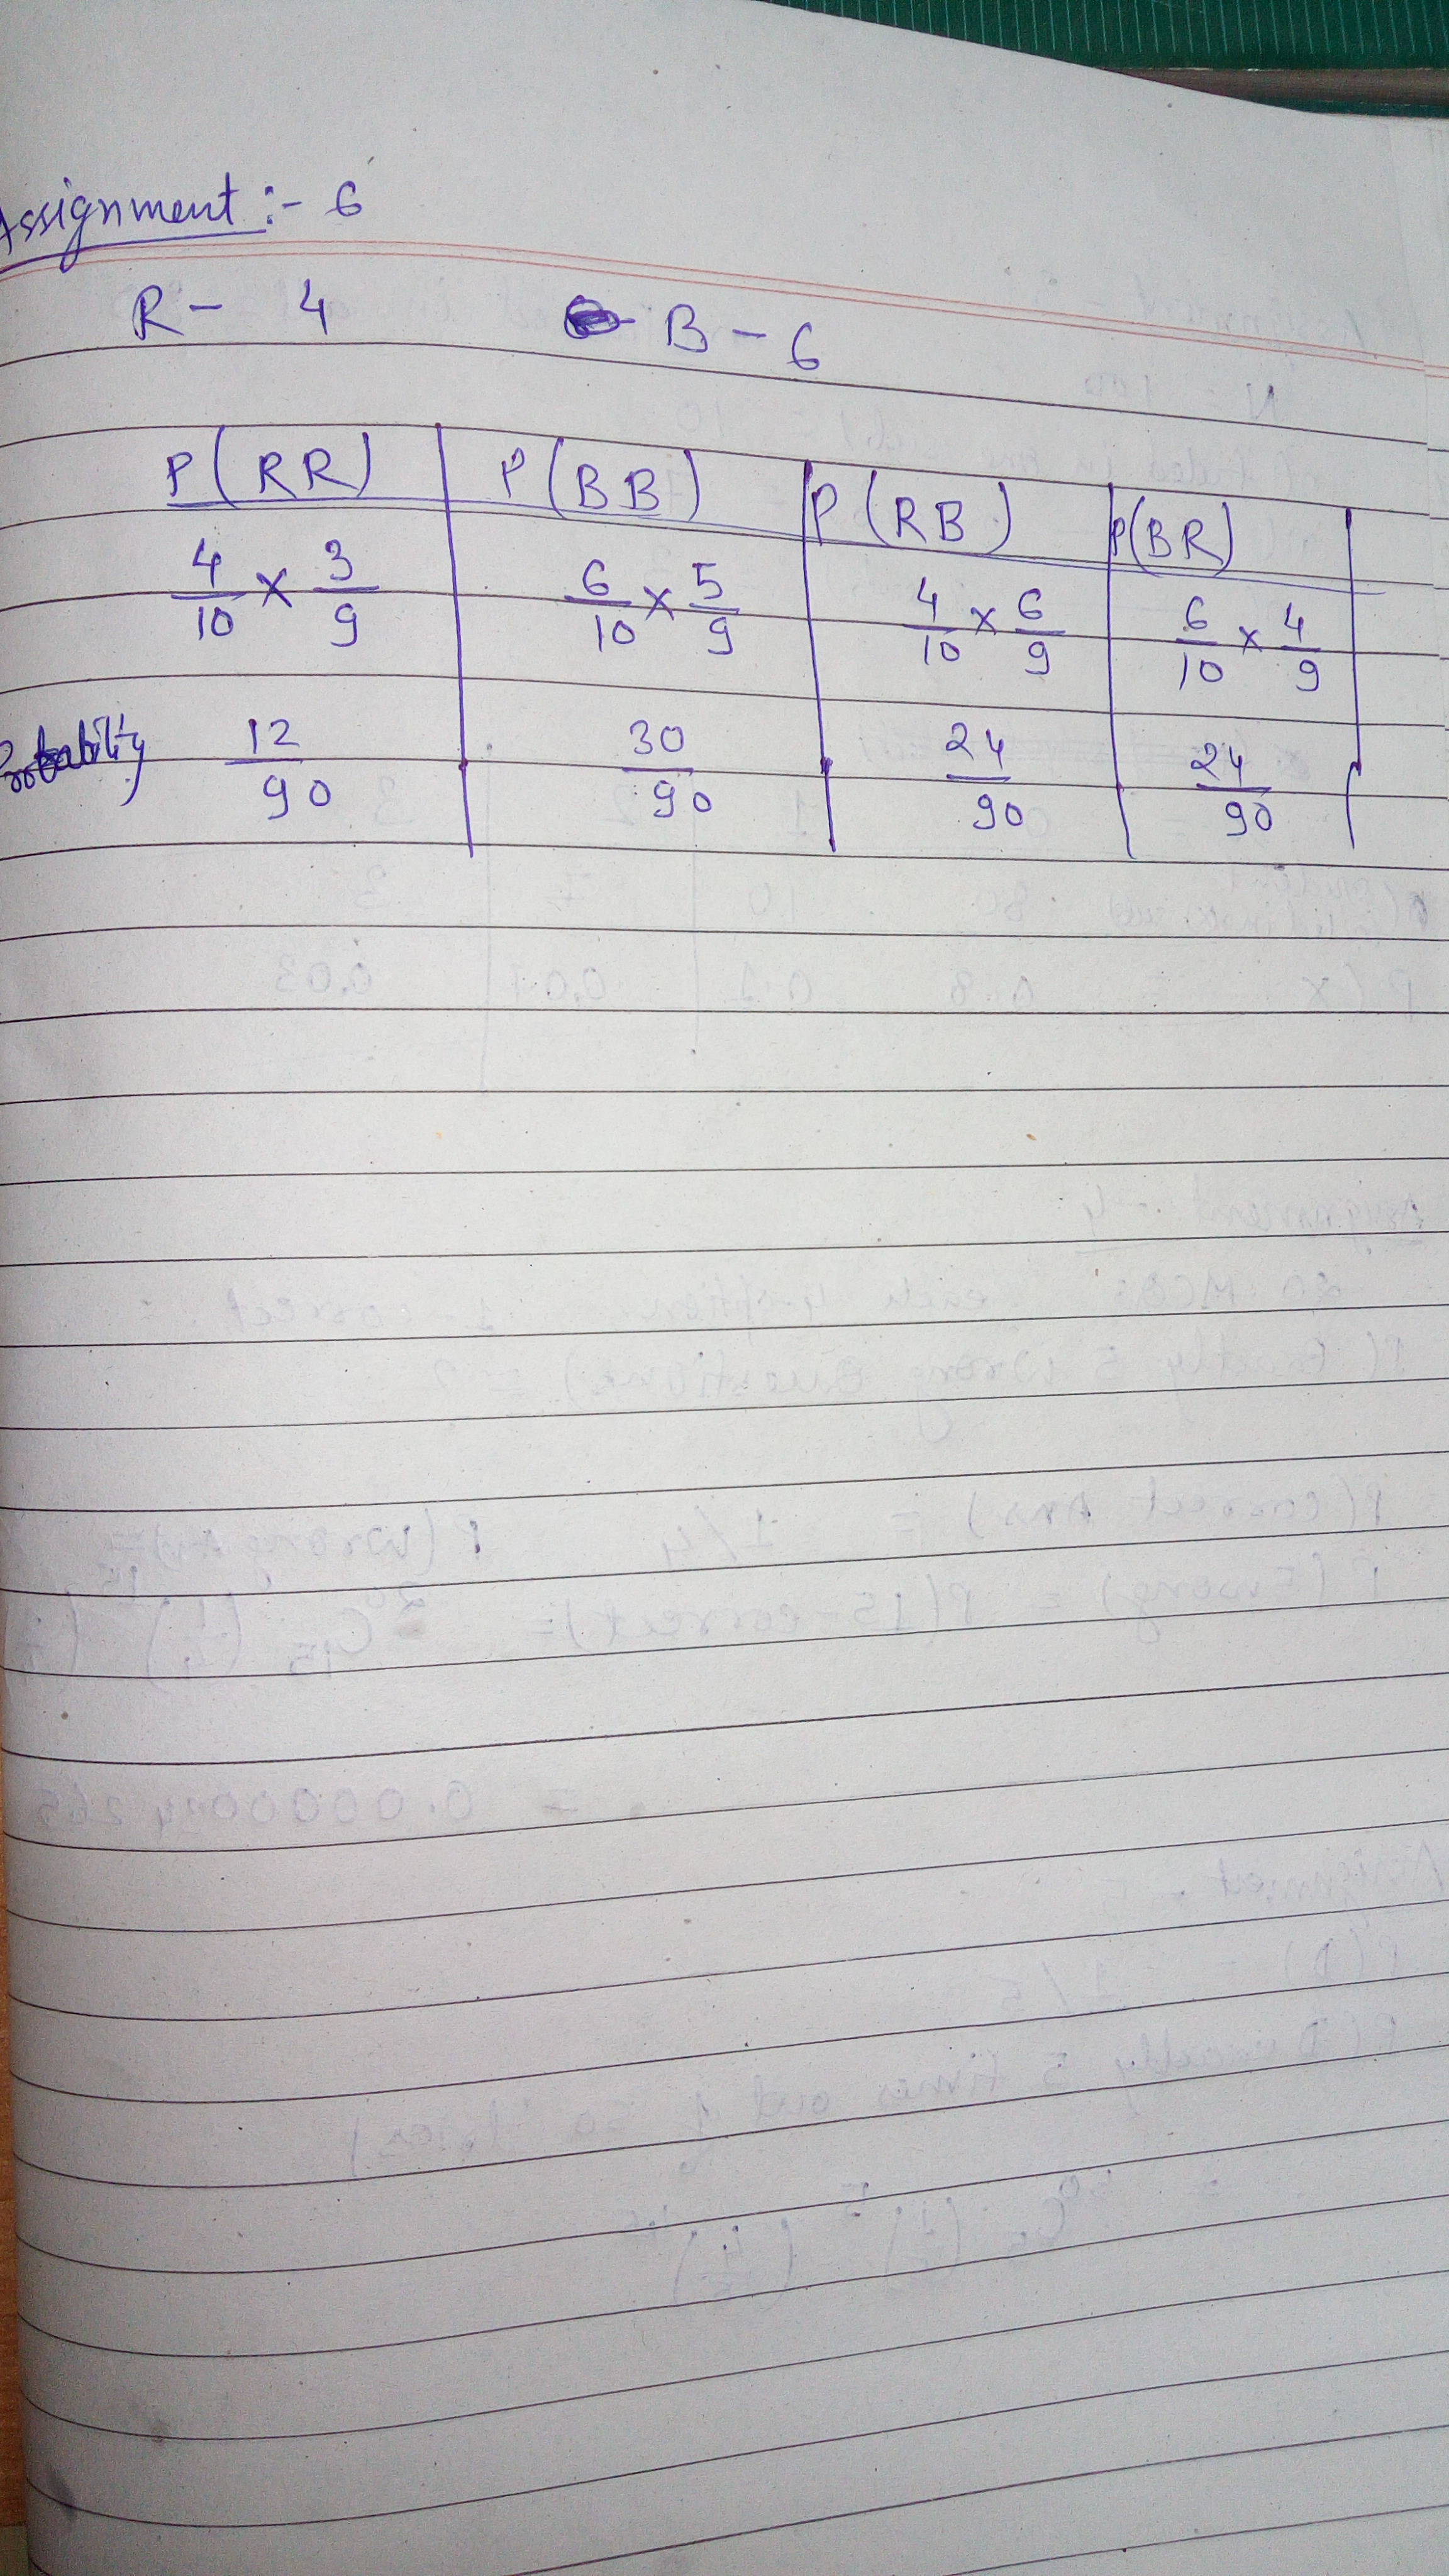 Assignment :- 6
R - 4 B - 6
P(RR) P(BB) P(RB) P(BR)
4/10 × 3/9 6/10 × 5/9 4/10 × 6/9 6/10 × 4/9
Probability 12/90 30/90 24/90 24/90